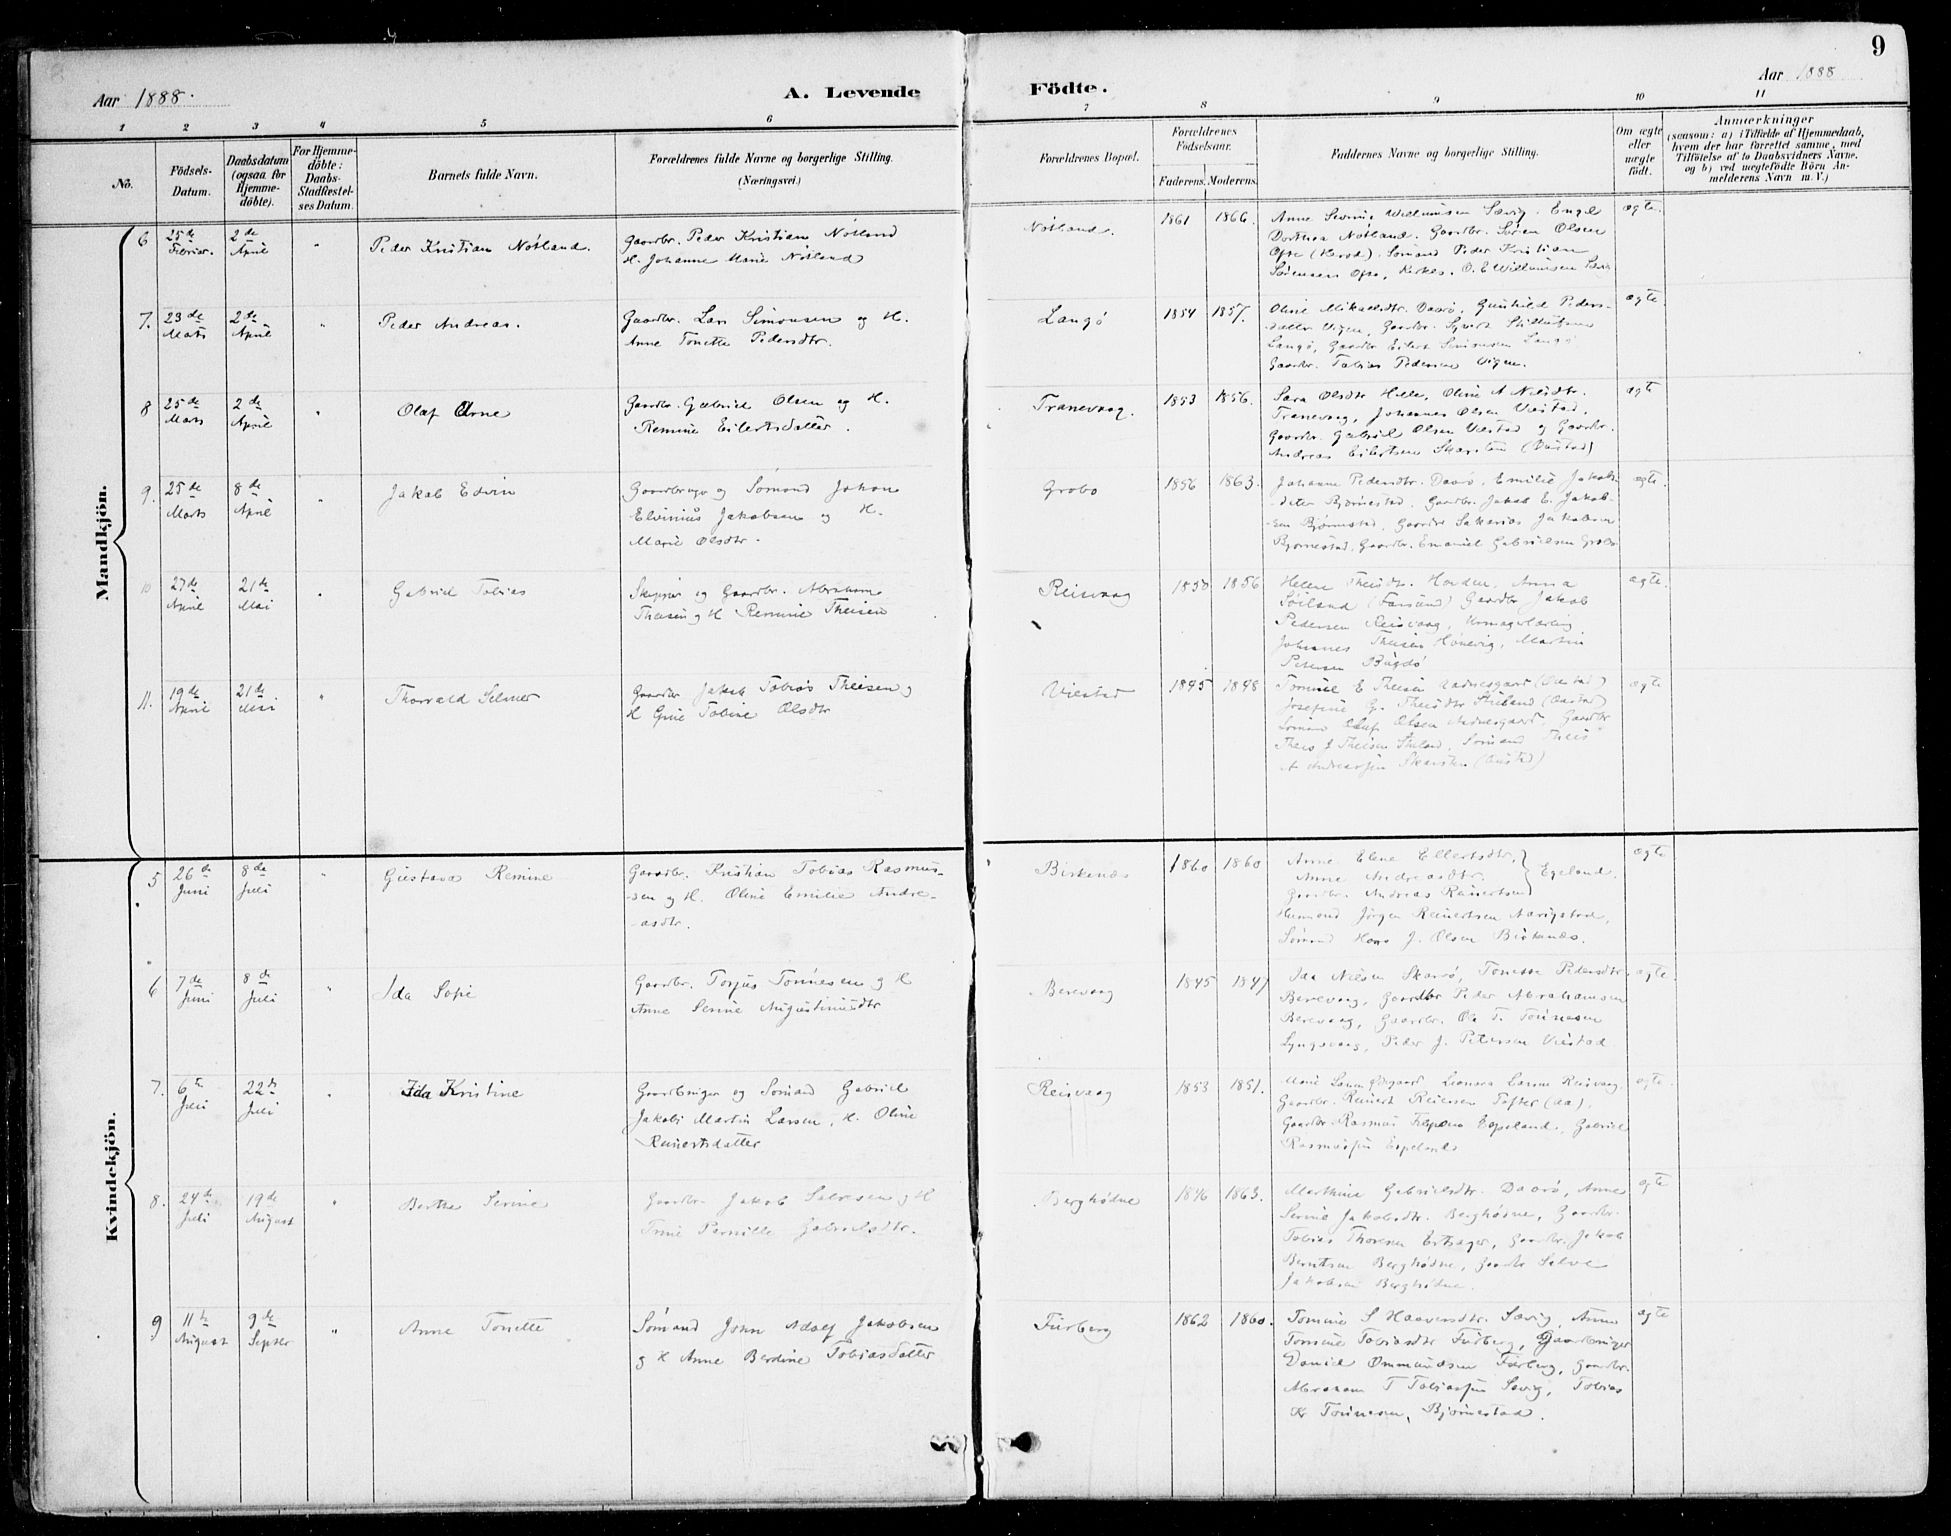 9
Aar 1888. A. Levende Födte. Aar 1888
1 2 3 4 5 6 7 8 9 10 11
No.
Födsels-Datum.
Daabsdatum (ogsaa for Hjemmedöbte).
For Hjemmedöbte: Daabs-Stadfæstelses Datum.
Barnets fulde Navn.
Forældrenes fulde Navne og borgerlige Stilling. (Næringsvei.)
Forældrenes Bopæl.
Forældrenes Födselsaar.
Faderens. Moderens.
Faddernes Navne og borgerlige Stilling.
Om ægte eller uægte födt.
Anmærkninger
(saasom: a) i Tilfælde af Hjemmedaab,
hvem der har forrettet samme, med
Tilföielse af to Daabsvidners Navne,
og b) ved uægtefödte Börn An-
melderens Navn m. V.)
Mandkjön.
6 25de Februar. 2de April " Peder Kristian Nötland. Gaardbr. Peder Kristian Nötland
H. Johanne Marie Nötland
Nötland. 1861 1866. Anne Serine Willumsen Sævig. Engel
Dorthea Nötland. Gaardbr. Sören Olsen
Ofte (Herad). Sömand Peder Kristian
Sörensen Ofte, Kirkes. O. E Willumsen
ægte.
7. 23de Marts 2de April " Peder Andreas. Gaardbr. Lars Simonsen og H.
Anne Tonette Pedersdtr.
Langö 1854 1857. Oline Mikaelsdtr. Daarö, Gunhild Peders-
datter Vigen, Gaardbr. Sjvert
Langö, Gaardbr Eilert Simonsen Langö
Gaardbr. Tobias Pedersen Vigen.
ægte.
8 25de Marts 2de April " Olaf Arne Gaardbr. Gabriel Olsen og H.
Remine Eilertsdatter.
Tranevaag. 1853 1856. Sara Olsdtr Helle, Oline A Nilsdtr.
Tranevaag, Johannes Olsen Viestad,
Gaardbr. Gabriel Olsen Viestad og Gaardbr.
Andreas Eilertsen Skarsten (Oustad)
ægte
9. 25de Marts 8de April " Jakob Edvin Gaardbruger og Sömand Johan
Elvinius Jakobsen og H.
Marie Olsdtr.
Grobo 1856 1863. Johanne Pedersdtr. Daarö, Emilie Jakobs-
dater Bjørnestad, Gaardbr. Jakob E. Jakob-
sen Bjørnestad, Gaardbr Sakarias Jakobsen
Bjørnestad, Gaardbr. Emanuel Gabrielsen Grobo
ægte.
10 27de April 21de Mai " Gabriel Tobias Skipper og Gaardbr. Abraham
Theisen og H Remine Theisen
Reisvaag 1850 1856 Helene Theisdtr. Hordem, Anna
Söiland (Farsund) Gaardbr Jakob
Pedersen Reisvaag, Urmagerlærling
Johannes Theisen Hönevig, Martin
Petersen Bugdö
ægte.
11. 19de April 21de Mai " Thorvald Selmer Gaardbr Jakob Tobias Theisen og
H Gine Tobine Olsdtr
Viestad 1845 1848 Tomine E Theisen (Oustad)
Josefine G. Theisdtr Stuland (Oustad)
Sömand Oluf Olsen, Gaardbr
Theis J Theisen Stuland, Sömand Theis
A Andreassen Skarsten (Oustad)
ægte
Kvindekjön.
5 26de Juni 8de Juli " Gustava Remine Gaardbr. Kristian Tobias Rasmus-
sen og H. Oline Emilie Andre-
asdtr.
Birkenæs 1860 1860 Anne Elene Ellertsdtr,
Anne Andreasdtr. } Egeland.
Gaardbr. Andreas Reinertsen
Husmand Jörgen Reinertsen
Sömand Hans J. Olsen Birkenæs.
ægte
6 7de Juni 8de Juli " Ida Sofie Gaardbr. Torjus Tönnesen og H
Anne Serine Augustinusdtr
Berevaag 1845 1847 Ida Nilsen Skarö, Tonette Pedersdtr.
Berevaag, Gaardbr Peder Abrahamsen
Berevaag, Gaardbr. Ole T. Tönnesen
Lyngsvaag, Peder J. Petersen Viestad
ægte.
7. 6te Juli 22de Juli " Ida Kristine Gaardbruger og Sömand Gabriel
Jakobi Martin Larsen, H. Oline
Reinertsdatter
Reisvaag 1853 1851. Marie Larsen, Leonora Larsen Reisvaag,
Gaardbr. Reinert Reiersen Tofter (Aa),
Gaardbr. Rasmus Espeland, Gabriel
Rasmussen Espeland
ægte.
8. 24de Juli 19de August " Berthe Serine Gaardbr. Jakob Salvesen og H
Trine Pernille Gabrielsdtr.
Berghödne 1846 1863. Marthine Gabrielsdtr. Daarö, Anne
Serine Jakobsdtr. Berghödne, Gaardbr.
Tobias Thorsen Ertzager, Gaardbr. Jakob
Berntsen Berghödne, Gaardbr Salve
Jakobsen Berghödne.
ægte
9 11te August 9de Septbr " Anne Tonette Sömand John Adolf Jakobsen
og H Anne Berdine Tobiasdatter
Fürberg 1862 1860. Tomine S Haavensdtr. Sævig, Anne
Tomine Tobiasdtr Fürberg, Gaardbruger
Daniel Ommundsen Fürberg, Gaardbr.
Abraham T Tobiassen Sævig, Tobias
Kr Tönnesen, Bjørnestad.
ægte